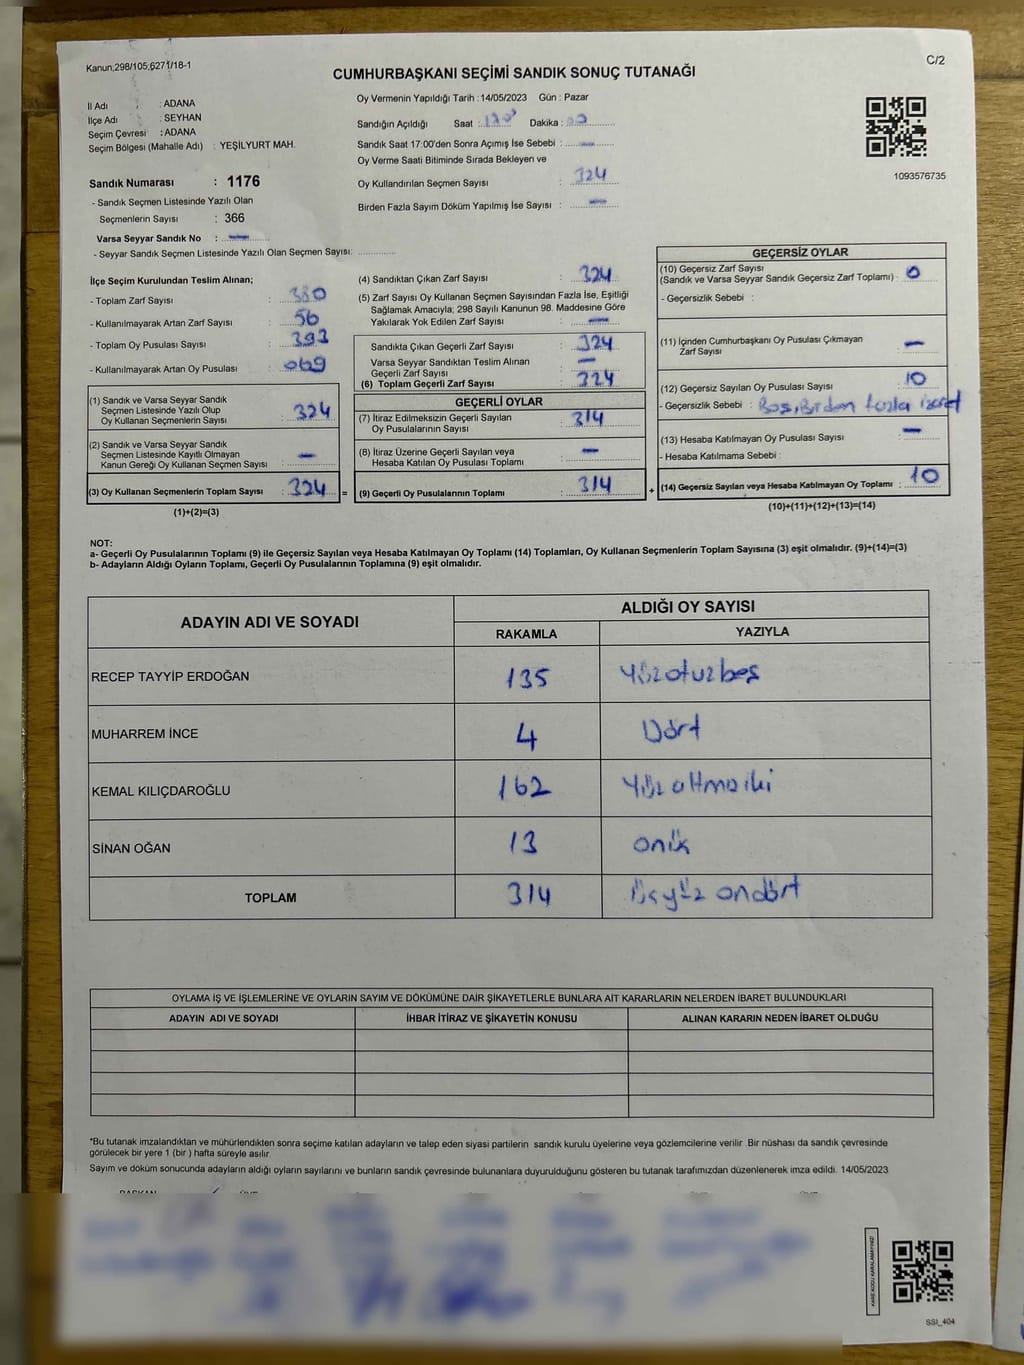 Kanun;298/105;6271/18-1
C/2
CUMHURBAŞKANI SEÇİMİ SANDIK SONUÇ TUTANAĞI
İl Adı : ADANA
İlçe Adı : SEYHAN
Seçim Çevresi : ADANA
Seçim Bölgesi (Mahalle Adı) : YEŞİLYURT MAH.
Sandık Numarası : 1176
- Sandık Seçmen Listesinde Yazılı Olan
Seçmenlerin Sayısı : 366
Varsa Seyyar Sandık No : —
- Seyyar Sandık Seçmen Listesinde Yazılı Olan Seçmen Sayısı:
Oy Vermenin Yapıldığı Tarih : 14/05/2023 Gün : Pazar
Sandığın Açıldığı Saat : Dakika :
Sandık Saat 17:00'den Sonra Açımış İse Sebebi : —
Oy Verme Saati Bitiminde Sırada Bekleyen ve
Oy Kullandırılan Seçmen Sayısı : 324
Birden Fazla Sayım Döküm Yapılmış İse Sayısı : —
1093576735
İlçe Seçim Kurulundan Teslim Alınan;
- Toplam Zarf Sayısı : 380
- Kullanılmayarak Artan Zarf Sayısı : 56
- Toplam Oy Pusulası Sayısı : 393
- Kullanılmayarak Artan Oy Pusulası : 069
(1) Sandık ve Varsa Seyyar Sandık
Seçmen Listesinde Yazılı Olup
Oy Kullanan Seçmenlerin Sayısı : 324
(2) Sandık ve Varsa Seyyar Sandık
Seçmen Listesinde Kayıtlı Olmayan
Kanun Gereği Oy Kullanan Seçmen Sayısı : —
(3) Oy Kullanan Seçmenlerin Toplam Sayısı : 324 =
(1)+(2)=(3)
(4) Sandıktan Çıkan Zarf Sayısı : 324
(5) Zarf Sayısı Oy Kullanan Seçmen Sayısından Fazla İse, Eşitliği
Sağlamak Amacıyla; 298 Sayılı Kanunun 98. Maddesine Göre
Yakılarak Yok Edilen Zarf Sayısı : —
Sandıkta Çıkan Geçerli Zarf Sayısı : 324
Varsa Seyyar Sandıktan Teslim Alınan
Geçerli Zarf Sayısı : —
(6) Toplam Geçerli Zarf Sayısı : 324
GEÇERLİ OYLAR
(7) İtiraz Edilmeksizin Geçerli Sayılan
Oy Pusulalarının Sayısı : 314
(8) İtiraz Üzerine Geçerli Sayılan veya
Hesaba Katılan Oy Pusulası Toplamı : —
(9) Geçerli Oy Pusulalarının Toplamı : 314 +
GEÇERSİZ OYLAR
(10) Geçersiz Zarf Sayısı
(Sandık ve Varsa Seyyar Sandık Geçersiz Zarf Toplamı) : 0
- Geçersizlik Sebebi :
(11) İçinden Cumhurbaşkanı Oy Pusulası Çıkmayan
Zarf Sayısı : —
(12) Geçersiz Sayılan Oy Pusulası Sayısı : 10
- Geçersizlik Sebebi : Boş, Birden fazla
(13) Hesaba Katılmayan Oy Pusulası Sayısı : —
- Hesaba Katılmama Sebebi :
(14) Geçersiz Sayılan veya Hesaba Katılmayan Oy Toplamı : 10
(10)+(11)+(12)+(13)=(14)
NOT:
a- Geçerli Oy Pusulalarının Toplamı (9) ile Geçersiz Sayılan veya Hesaba Katılmayan Oy Toplamı (14) Toplamları, Oy Kullanan Seçmenlerin Toplam Sayısına (3) eşit olmalıdır. (9)+(14)=(3)
b- Adayların Aldığı Oyların Toplamı, Geçerli Oy Pusulalarının Toplamına (9) eşit olmalıdır.
ADAYIN ADI VE SOYADI ALDIĞI OY SAYISI
RAKAMLA YAZIYLA
RECEP TAYYİP ERDOĞAN 135 Yüzotuzbeş
MUHARREM İNCE 4 Dört
KEMAL KILIÇDAROĞLU 162 Yüz altmışiki
SİNAN OĞAN 13 onüç
TOPLAM 314 Üçyüz ondört
OYLAMA İŞ VE İŞLEMLERİNE VE OYLARIN SAYIM VE DÖKÜMÜNE DAİR ŞİKAYETLERLE BUNLARA AİT KARARLARIN NELERDEN İBARET BULUNDUKLARI
ADAYIN ADI VE SOYADI İHBAR İTİRAZ VE ŞİKAYETİN KONUSU ALINAN KARARIN NEDEN İBARET OLDUĞU
*Bu tutanak imzalandıktan ve mühürlendikten sonra seçime katılan adayların ve talep eden siyasi partilerin sandık kurulu üyelerine veya gözlemcilerine verilir .Bir nüshası da sandık çevresinde
görülecek bir yere 1 (bir ) hafta süreyle asılır.
Sayım ve döküm sonucunda adayların aldığı oyların sayılarını ve bunların sandık çevresinde bulunanlara duyurulduğunu gösteren bu tutanak tarafımızdan düzenlenerek imza edildi. 14/05/2023
KARE KODU KARALAMAYINIZ!
SSI_404